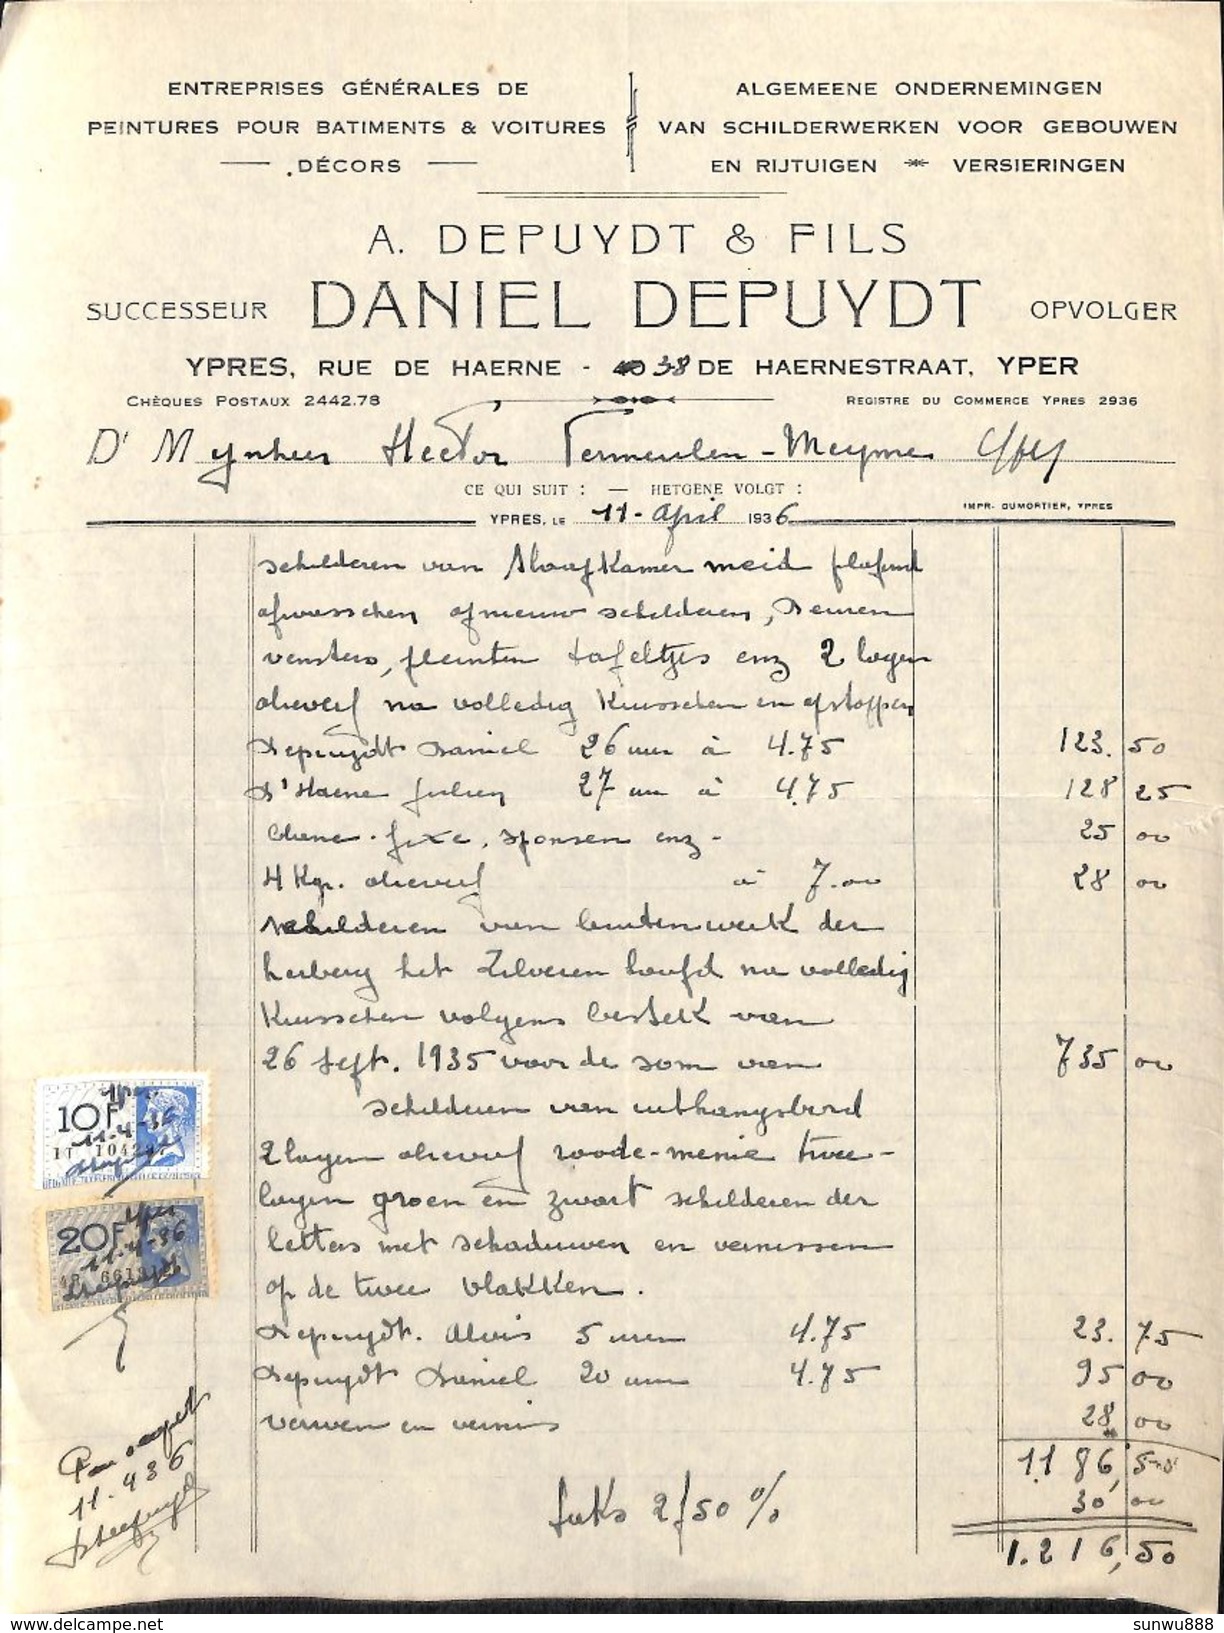 ENTREPRISES GÉNÉRALES DE
PEINTURES POUR BATIMENTS & VOITURES
DÉCORS
ALGEMEENE ONDERNEMINGEN
VAN SCHILDERWERKEN VOOR GEBOUWEN
EN RIJTUIGEN VERSIERINGEN
A. DEPUYDT & FILS
SUCCESSEUR DANIEL DEPUYDT OPVOLGER
YPRES, RUE DE HAERNE - 40 38 DE HAERNESTRAAT, YPER
CHÈQUES POSTAUX 2442.78
REGISTRE DU COMMERCE YPRES 2936
Dt Mynheer Hector Vermeulen - Meyme Yper
CE QUI SUIT : — HETGENE VOLGT :
YPRES, LE 11 - April 1936
IMPR. DUMORTIER, YPRES
schilderen van slaapkamer meid plafond
afwasschen opnieuw schilderen, deuren
vensters, pleinten tafeltjes enz 2 lagen
olieverf na volledig kuisschen en opstoppen
Depuydt Daniel 26 uur à 4.75 123.50
D'Haene Julien 27 uur à 4.75 128 25
fixe, sponsen enz - 25 00
4 Kgr. olieverf à 7.00 28 00
schilderen van buitenwerk der
herberg het Zilveren hoofd na volledig
kuisschen volgens bestek van
26 Sept. 1935 voor de som van 735 00
schilderen van uithangsbord
2 lagen olieverf roode-menie twee-
lagen groen en zwart schilderen der
letters met schaduwen en vernissen
op de twee vlakken.
Depuydt. Aloïs 5 uren 4.75 23.75
Depuydt Daniel 20 uur 4.75 95 00
verwen en vernis 28 00
1186,50
taks 2f50 % 30 00
1.216,50
10F
Yper
11-4-36
Depuydt
20F
Yper
11-4-36
Depuydt
Pour acquit
11.4 36
Depuydt
sunwu888